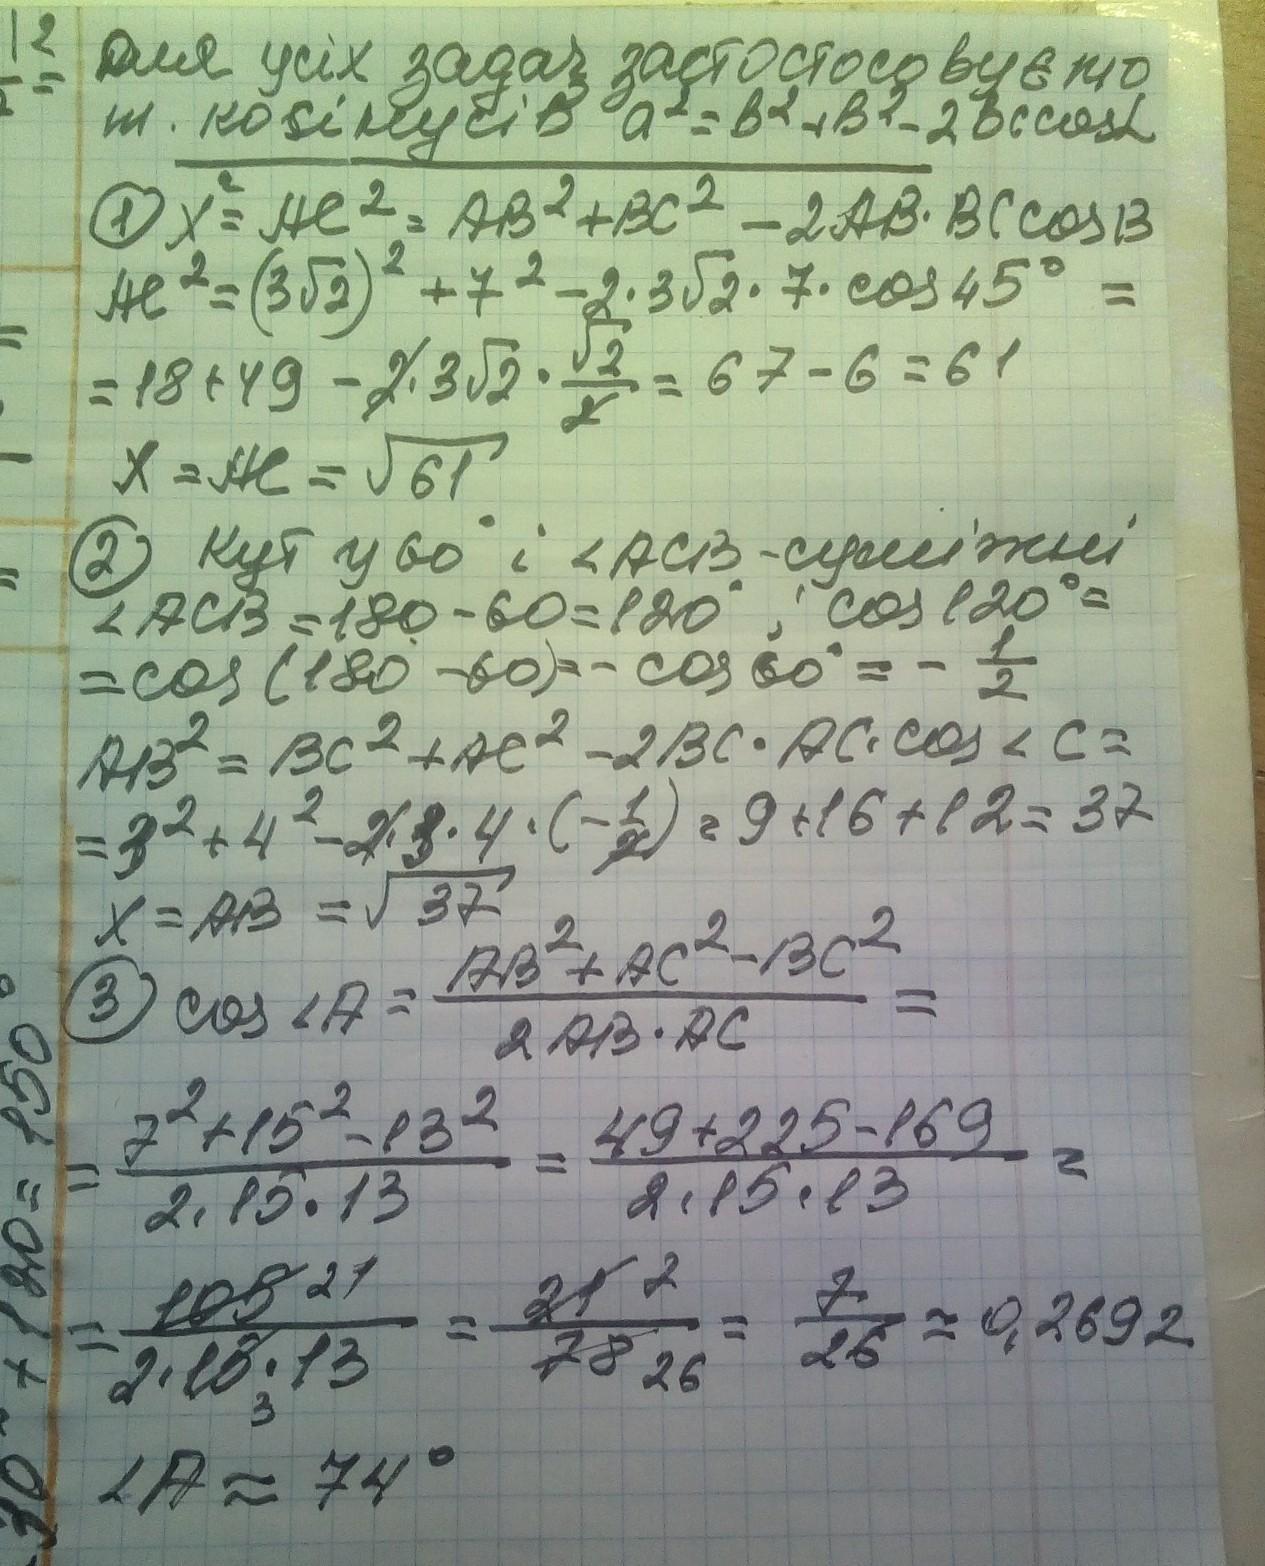 12
Для усіх задач застостосовуємо
т. косінусів a² = b² + b² - 2bc cosα
① x² = AC² = AB² + BC² - 2AB · BC cos B
AC² = (3√2)² + 7² - 2 · 3√2 · 7 · cos 45° =
= 18 + 49 - 2 · 3√2 · √2/2 = 67 - 6 = 61
X = AC = √61
② Кут у 60° і <ACB - суміжні
<ACB = 180 - 60 = 120° ; cos 120° =
= cos (180 - 60) = - cos 60° = - 1/2
AB² = BC² + AC² - 2BC · AC · cos < C =
= 3² + 4² - 2 · 3 · 4 · (- 1/2) = 9 + 16 + 12 = 37
X = AB = √37
③ cos <A = (AB² + AC² - BC²)/(2AB · AC) =
= (7² + 15² - 13²)/(2 · 15 · 13) = (49 + 225 - 169)/(2 · 15 · 13) =
= 105 21/(2 · 15 3 · 13) = 21 7/78 26 = 7/26 ≈ 0,2692
<A ≈ 74°
30° + 120 = 150°